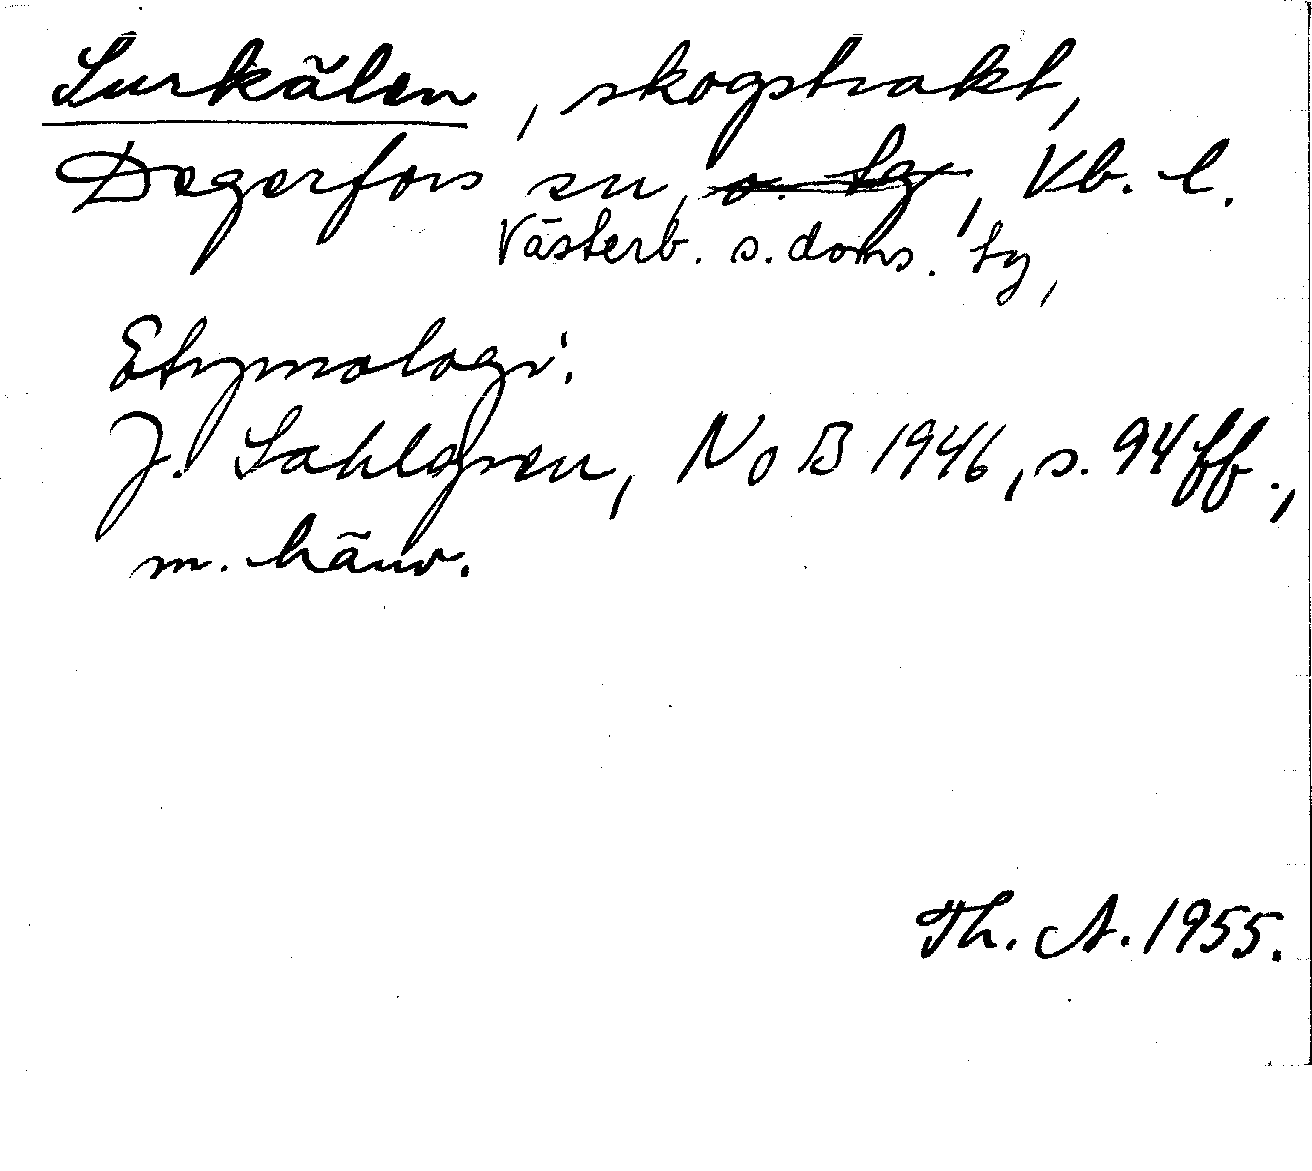 Surkälen, skogstrakt,
Degerfors sn, o. tg, Vb. l.
Västerb. s. doms. tg,
Etymologi:
J. Sahlgren, NoB 1946, s. 94 ff.,
m. hänv.
Th. A. 1955.